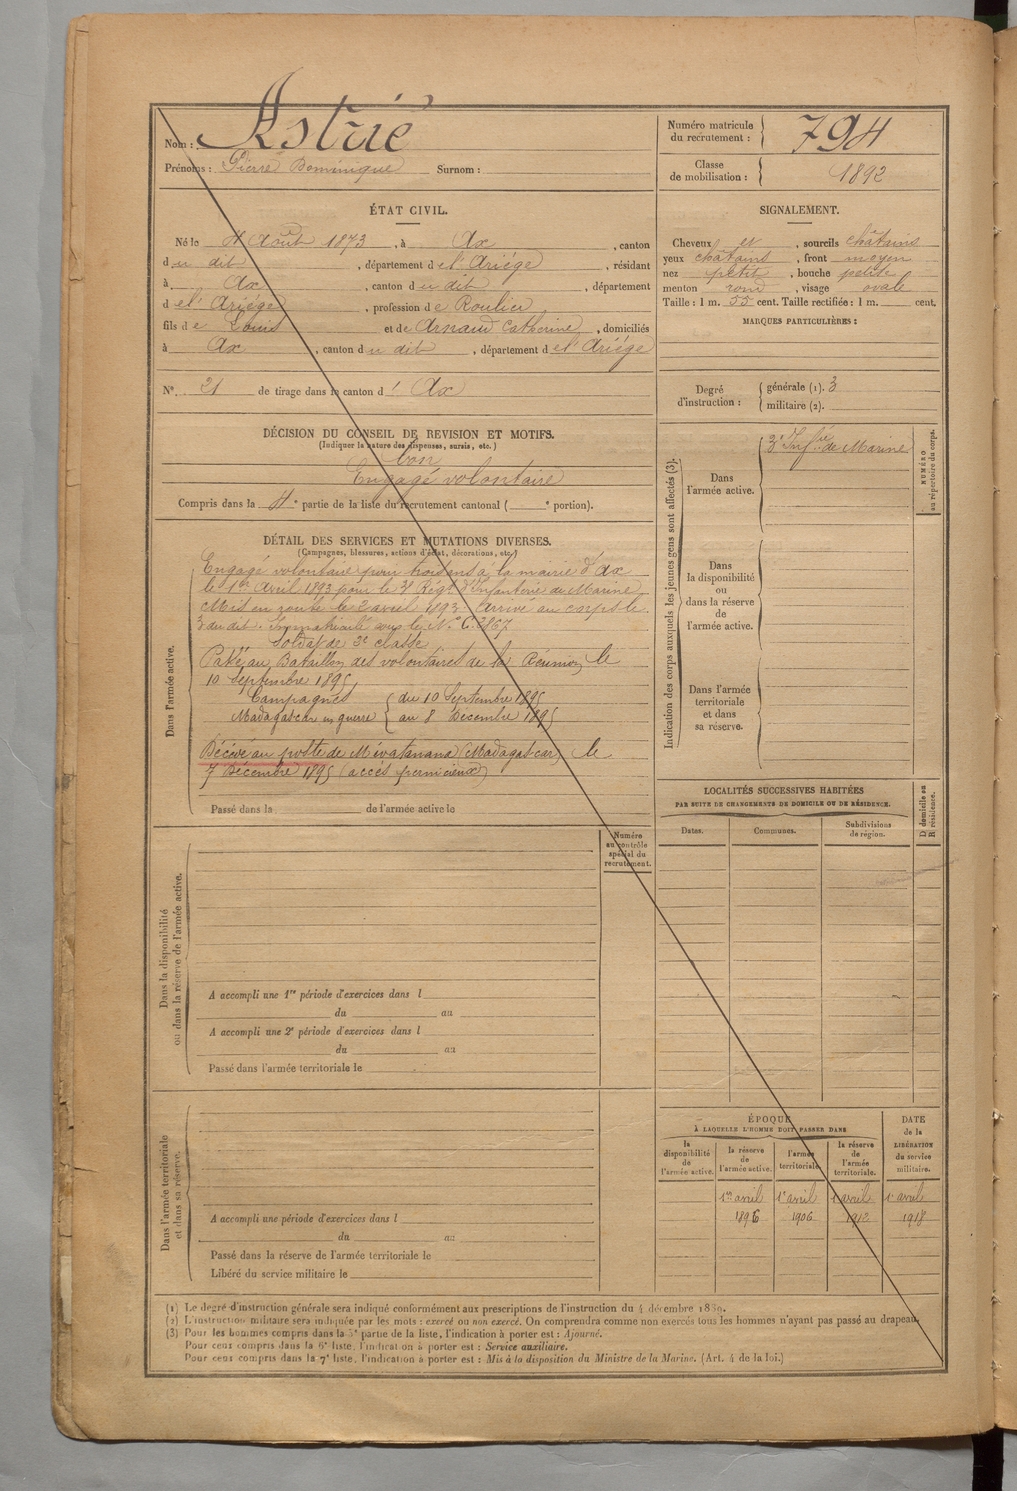 Nom : Astrié
Prénoms : Pierre Dominique Surnom :
Numéro matricule du recrutement : 794
Classe de mobilisation : 1892
ÉTAT CIVIL.
Né le 4 Août 1873, à Ax, canton
du dit, département de l'Ariège, résidant
à Ax, canton du dit, département
de l'Ariège, profession de Roulier
fils de Louis et de Arnaud Catherine, domiciliés
à Ax, canton du dit, département de l'Ariège
N° 21 de tirage dans le canton d' Ax
SIGNALEMENT.
Cheveux et, sourcils châtains
yeux châtains, front moyen
nez petit, bouche petite
menton rond, visage ovale
Taille : 1 m. 55 cent. Taille rectifiée : 1 m. cent.
MARQUES PARTICULIÈRES :
Degré d'instruction : générale (1). 3
militaire (2).
DÉCISION DU CONSEIL DE REVISION ET MOTIFS.
(Indiquer la nature des dispenses, sursis, etc.)
bon
Engagé volontaire
Compris dans la 4e partie de la liste du recrutement cantonal ( e portion).
DÉTAIL DES SERVICES ET MUTATIONS DIVERSES.
(Campagnes, blessures, actions d'éclat, décorations, etc.)
Dans l'armée active.
Engagé volontaire pour trois ans à la mairie d'Ax
le 1er Avril 1893 pour le Régt d'Infanterie de Marine
Mis en route le 2 avril 1893. Arrivé au corps le
3 du dit. Immatriculé sous le N° C.3867
Soldat de 2e classe
Passé au Bataillon des volontaires de la Réunion le
10 Septembre 1895
Campagnes du 10 Septembre 1895
Madagascar en guerre au 8 Décembre 1895
Décédé au poste de Mévatanana (Madagascar) le
7 Décembre 1895 (accès pernicieux)
Passé dans la de l'armée active le
Indication des corps auxquels les jeunes gens sont affectés (3).
Dans l'armée active.
3e Infie de Marine
NUMÉRO au répertoire du corps.
Dans la disponibilité ou dans la réserve de l'armée active.
Dans l'armée territoriale et dans sa réserve.
LOCALITÉS SUCCESSIVES HABITÉES
PAR SUITE DE CHANGEMENTS DE DOMICILE OU DE RÉSIDENCE.
Dates. Communes. Subdivisions de région. D domicile ou R résidence.
Numéro au contrôle spécial du recrutement.
Dans la disponibilité ou dans la réserve de l'armée active.
A accompli une 1re période d'exercices dans l
du au
A accompli une 2e période d'exercices dans l
du au
Passé dans l'armée territoriale le
Dans l'armée territoriale et dans sa réserve.
A accompli une période d'exercices dans l
du au
Passé dans la réserve de l'armée territoriale le
Libéré du service militaire le
ÉPOQUE
À LAQUELLE L'HOMME DOIT PASSER DANS
la disponibilité de l'armée active. la réserve de l'armée active. l'armée territoriale. la réserve de l'armée territoriale. DATE de la LIBÉRATION du service militaire.
1er avril 1er avril 1 avril 1 avril
1896 1906 1912 1918
(1) Le degré d'instruction générale sera indiqué conformément aux prescriptions de l'instruction du 4 décembre 1889.
(2) L'instruction militaire sera indiquée par les mots : exercé ou non exercé. On comprendra comme non exercés tous les hommes n'ayant pas passé au drapeau.
(3) Pour les hommes compris dans la 5e partie de la liste, l'indication à porter est : Ajourné.
Pour ceux compris dans la 6e liste, l'indication à porter est : Service auxiliaire.
Pour ceux compris dans la 7e liste, l'indication à porter est : Mis à la disposition du Ministre de la Marine. (Art. 4 de la loi.)